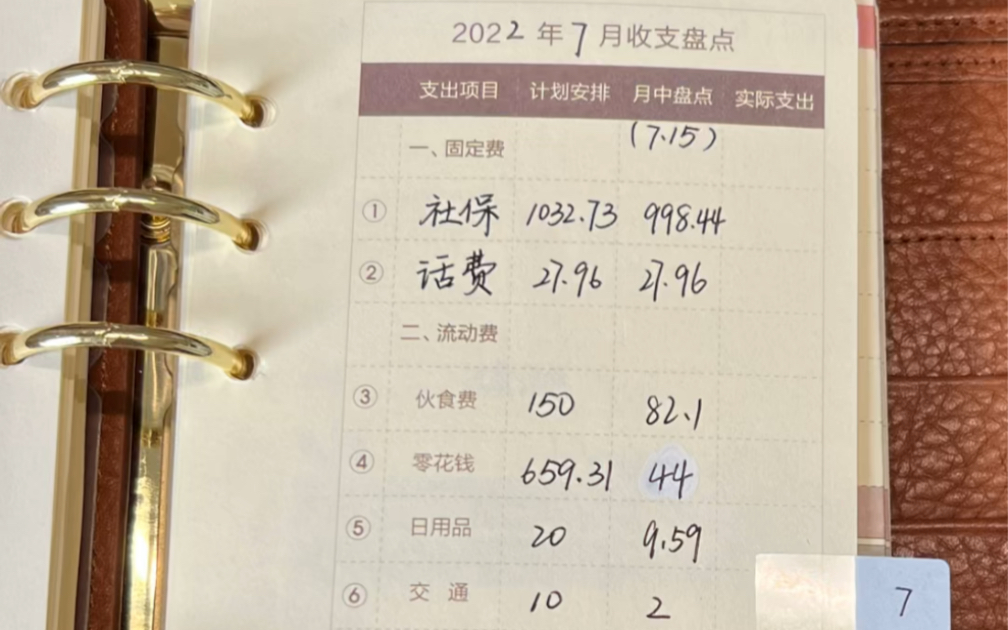 2022年7月收支盘点
支出项目 计划安排 月中盘点 实际支出
一、固定费 (7.15)
① 社保 1032.73 998.44
② 话费 27.96 27.96
二、流动费
③ 伙食费 150 82.1
④ 零花钱 659.31 44
⑤ 日用品 20 9.59
⑥ 交通 10 2
7